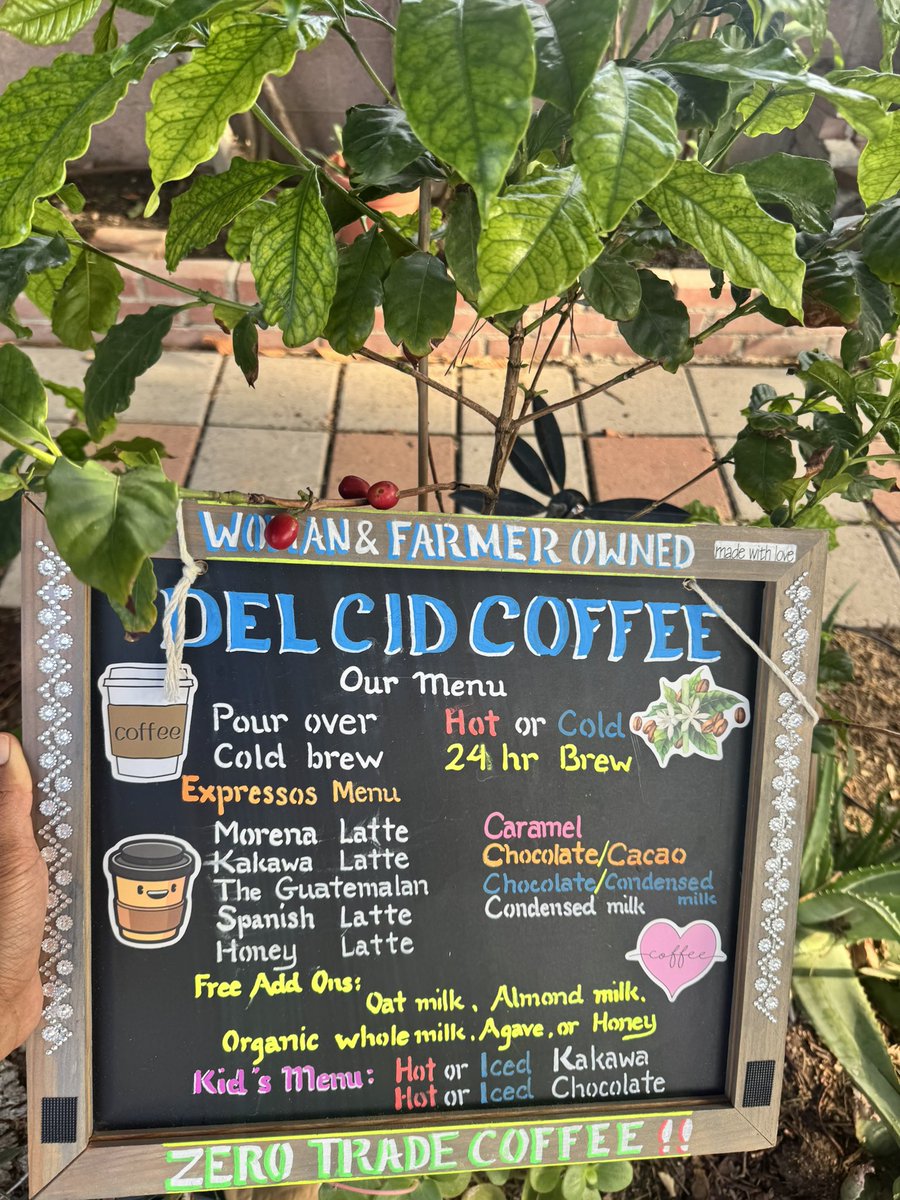 WOMAN & FARMER OWNED made with love
DEL CID COFFEE
Our Menu
Pour over Hot or Cold
Cold brew 24 hr Brew
coffee
Expressos Menu
Morena Latte Caramel
Kakawa Latte Chocolate/Cacao
The Guatemalan Chocolate/Condensed milk
Spanish Latte Condensed milk
Honey Latte
coffee
Free Add Ons:
Oat milk, Almond milk,
Organic whole milk, Agave, or Honey
Kid's Menu: Hot or Iced Kakawa
Hot or Iced Chocolate
ZERO TRADE COFFEE !!